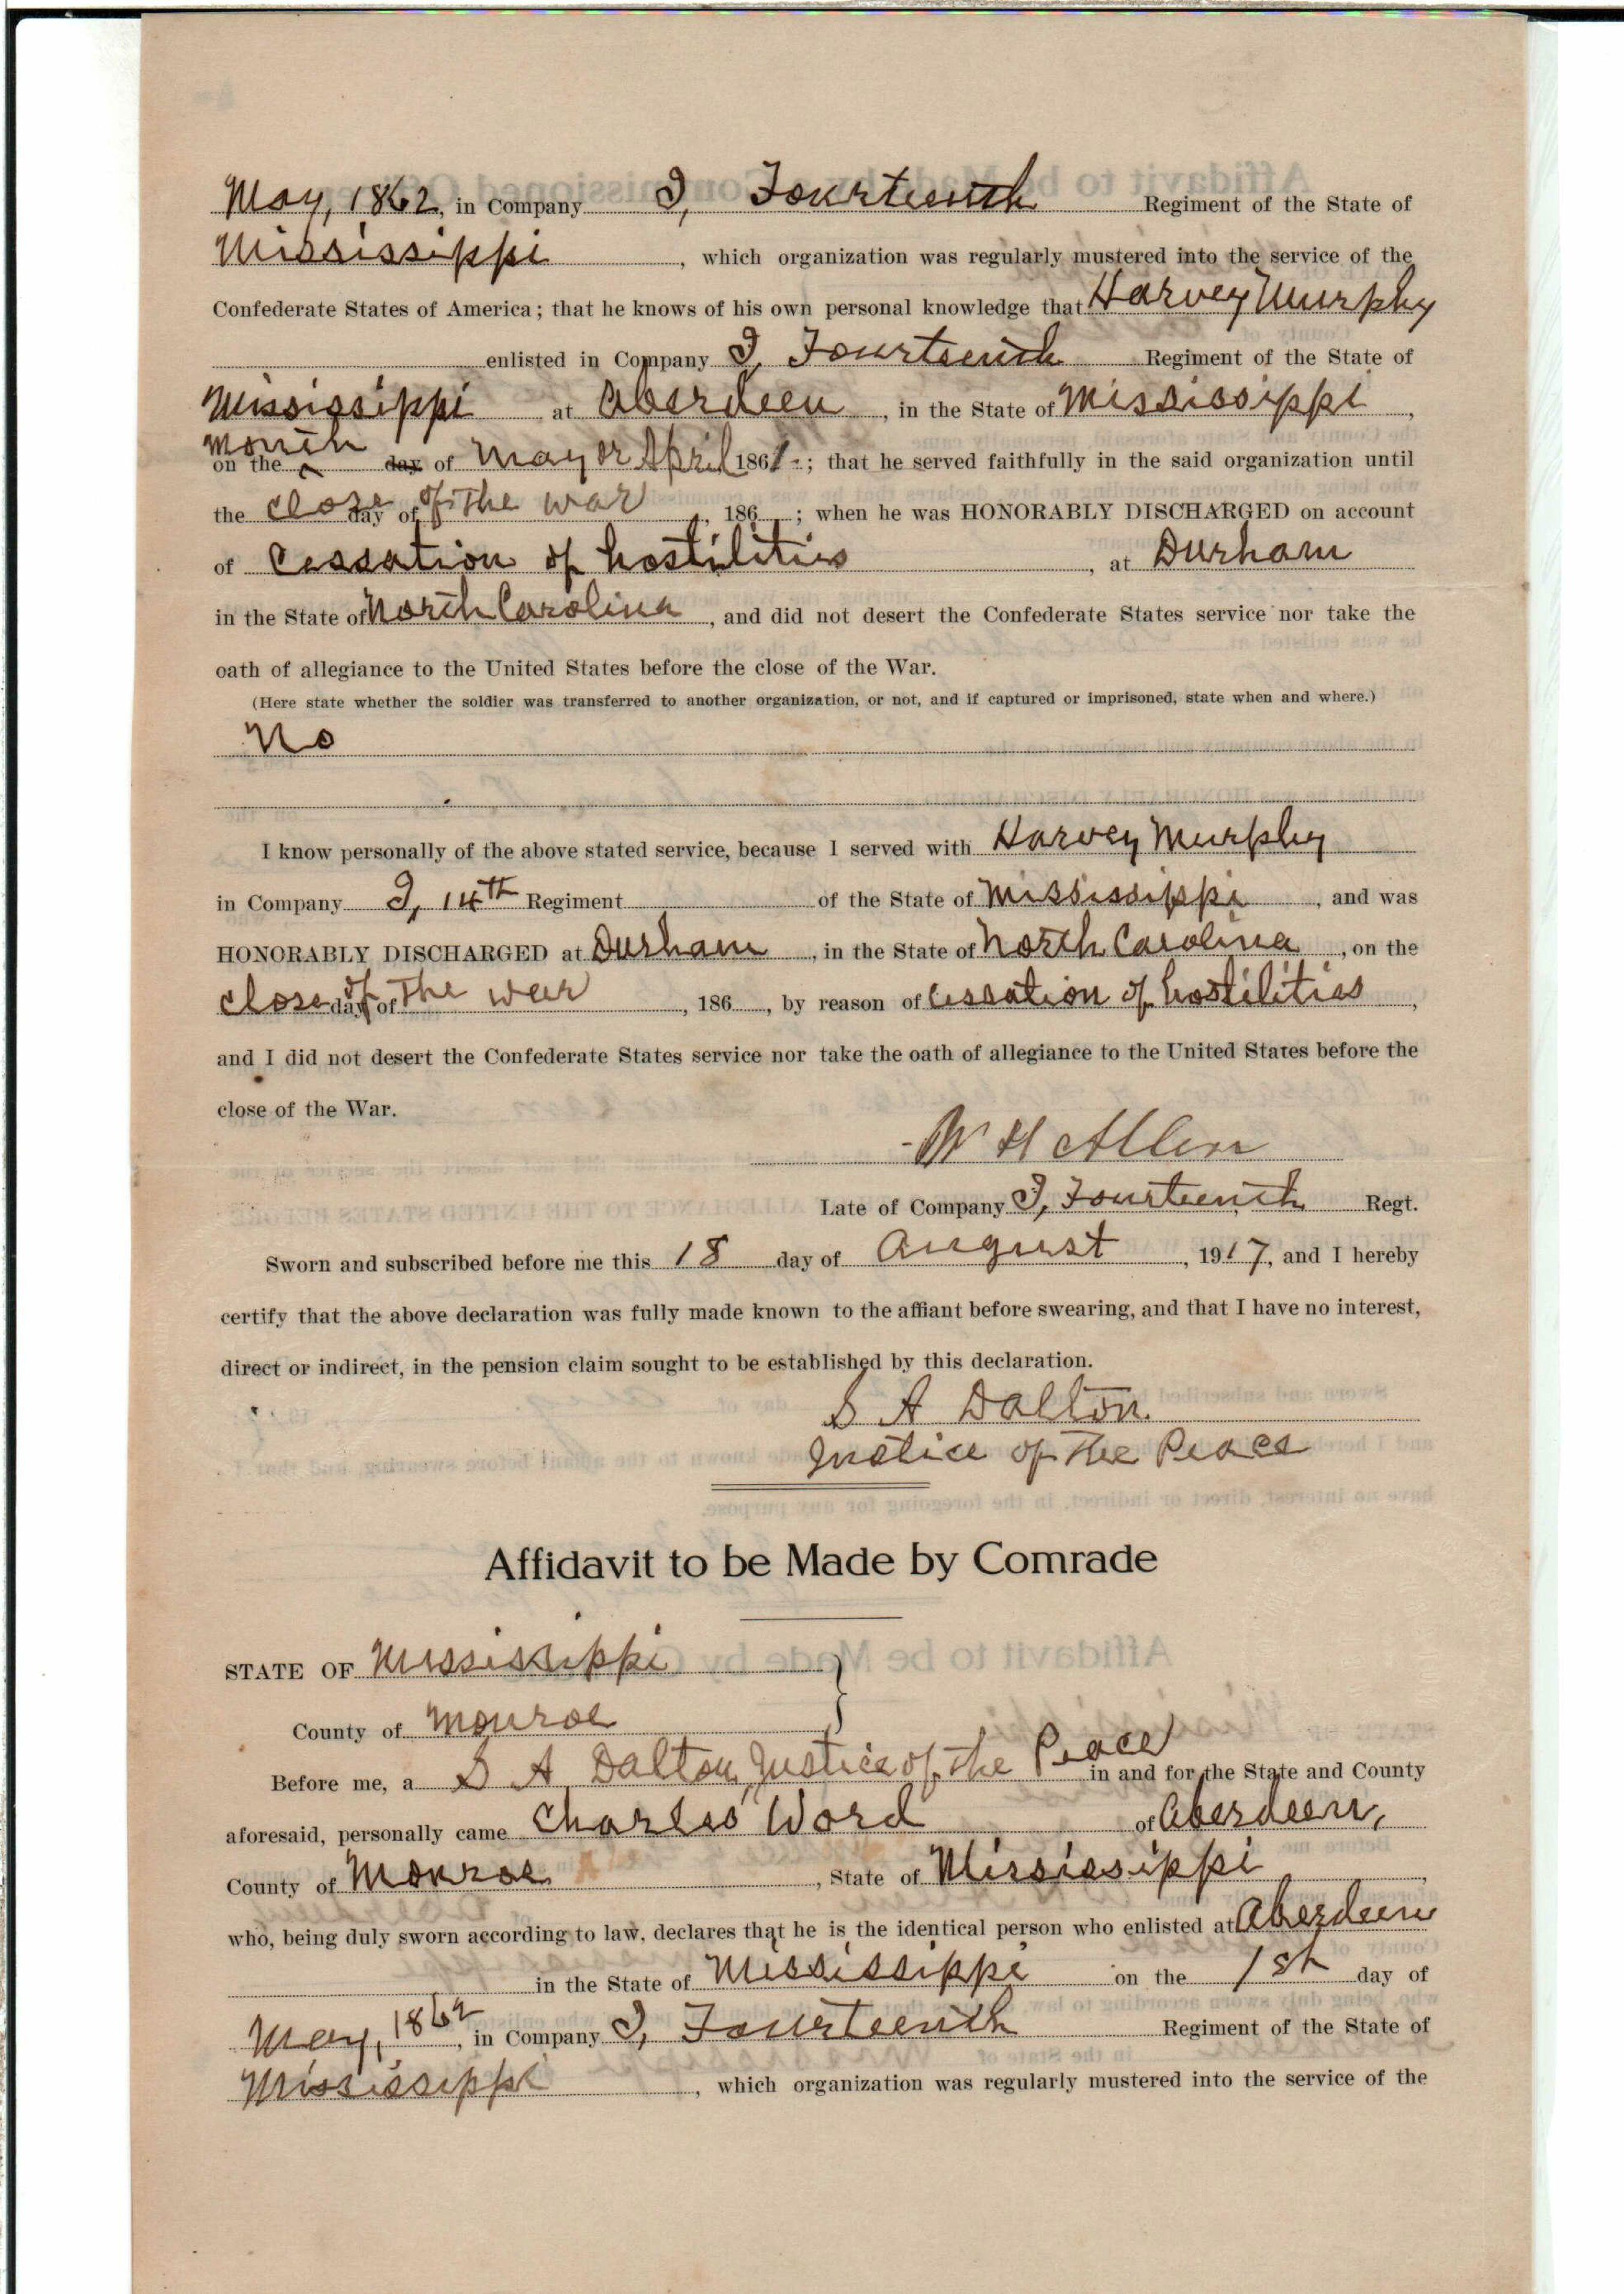 May, 1862, in Company I, Fourteenth Regiment of the State of
Mississippi, which organization was regularly mustered into the service of the
Confederate States of America; that he knows of his own personal knowledge that Harvey Murphy
enlisted in Company I, Fourteenth Regiment of the State of
Mississippi at Aberdeen, in the State of Mississippi,
month
on the ^ day of May or April 1861; that he served faithfully in the said organization until
the close day of of the war, 186 ; when he was HONORABLY DISCHARGED on account
of Cessation of hostilities, at Durham
in the State of North Carolina, and did not desert the Confederate States service nor take the
oath of allegiance to the United States before the close of the War.
(Here state whether the soldier was transferred to another organization, or not, and if captured or imprisoned, state when and where.)
No
I know personally of the above stated service, because I served with Harvey Murphy
in Company I, 14th Regiment of the State of Mississippi, and was
HONORABLY DISCHARGED at Durham, in the State of North Carolina, on the
close day of of the war, 186 , by reason of cessation of hostilities,
and I did not desert the Confederate States service nor take the oath of allegiance to the United States before the
close of the War.
W H Allen
Late of Company I, Fourteenth Regt.
Sworn and subscribed before me this 18 day of August, 1917, and I hereby
certify that the above declaration was fully made known to the affiant before swearing, and that I have no interest,
direct or indirect, in the pension claim sought to be established by this declaration.
S A Dalton.
Justice of the Peace
Affidavit to be Made by Comrade
STATE OF Mississippi }
County of Monroe
Before me, a S A Dalton, Justice of the Peace in and for the State and County
aforesaid, personally came Charles Word of Aberdeen,
County of Monroe, State of Mississippi,
who, being duly sworn according to law, declares that he is the identical person who enlisted at Aberdeen
in the State of Mississippi on the 1st day of
May, 1862, in Company I, Fourteenth Regiment of the State of
Mississippi, which organization was regularly mustered into the service of the